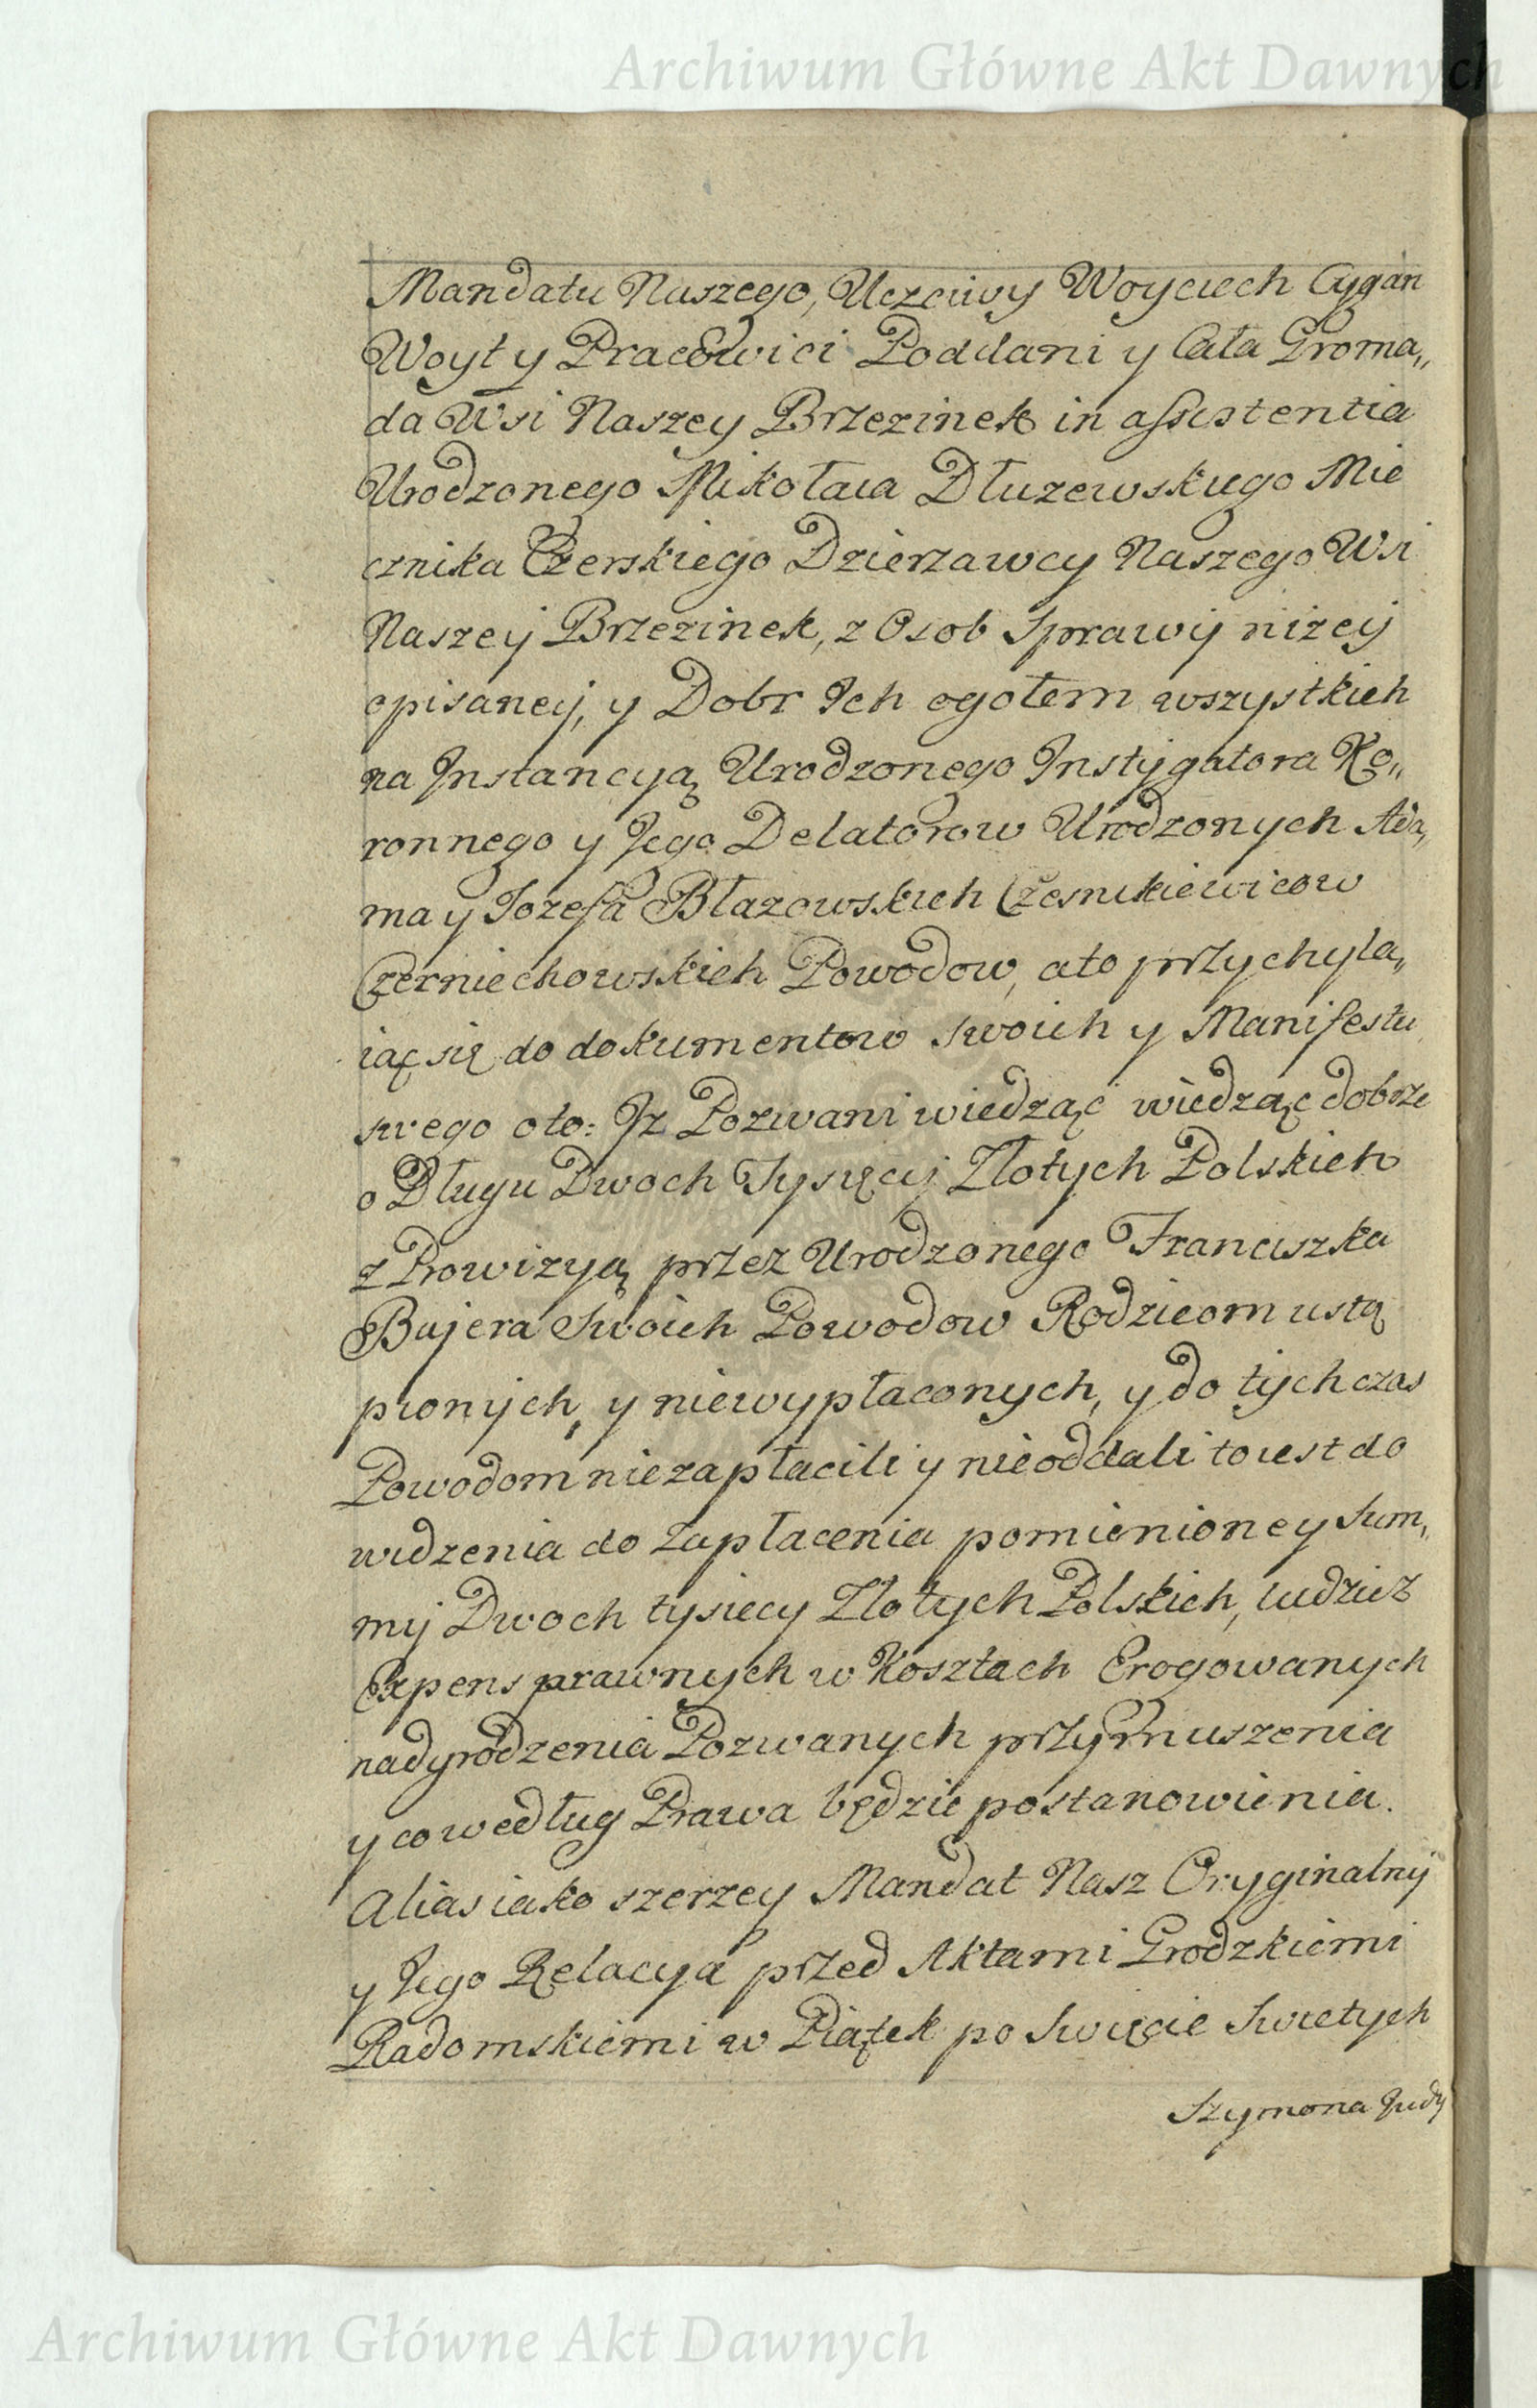 Archiwum Główne Akt Dawnych
Mandatu Naszego, Uczciwy Woyciech Cygan
Woyt y Pracowici Poddani y Cała Groma„
da Wsi Naszey Brzezinek in assistentia
Urodzonego Mikołaia Dłuzewskiego Mie
cznika Czerskiego Dzierzawcy Naszego Wsi
Naszey Brzezinek, z Osob Sprawy nizey
opisaney, y Dobr Ich ogołem wszystkich
na Instancyą Urodzonego Instygatora Ko„
ronnego y Jego Delatorow Urodzonych Ada„
ma y Jozefa Błazowskich Czesnikiewicow
Czerniechowskich Powodow, ato przychyla„
iąc się do dokumentow swoich y Manifestu
swego oto: Iz Pozwani wiedząc wiedząc dobrze
o Długu Dwoch Tysięcy Złotych Polskich
z Prowizyą przez Urodzonego Franciszka
Bujera Swoich Powodow Rodzicom ustą
pionych, y niewypłaconych, y do tychczas
Powodom niezapłacili y nieoddali to iest do
widzenia do zapłacenia pomienioney Sum„
my Dwoch tysiecy Złotych Polskich, tudziez
Expens prawnych w Kosztach Erogowanych
nadgrodzenia Pozwanych przymuszenia
y co według Prawa będzie postanowienia.
Alias iako szerzey Mandat Nasz Oryginalny
y Jego Relacya przed Aktami Grodzkiemi
Radomskiemi w Piątek po Swięcie Swietych
Szymona Judy
Archiwum Główne Akt Dawnych